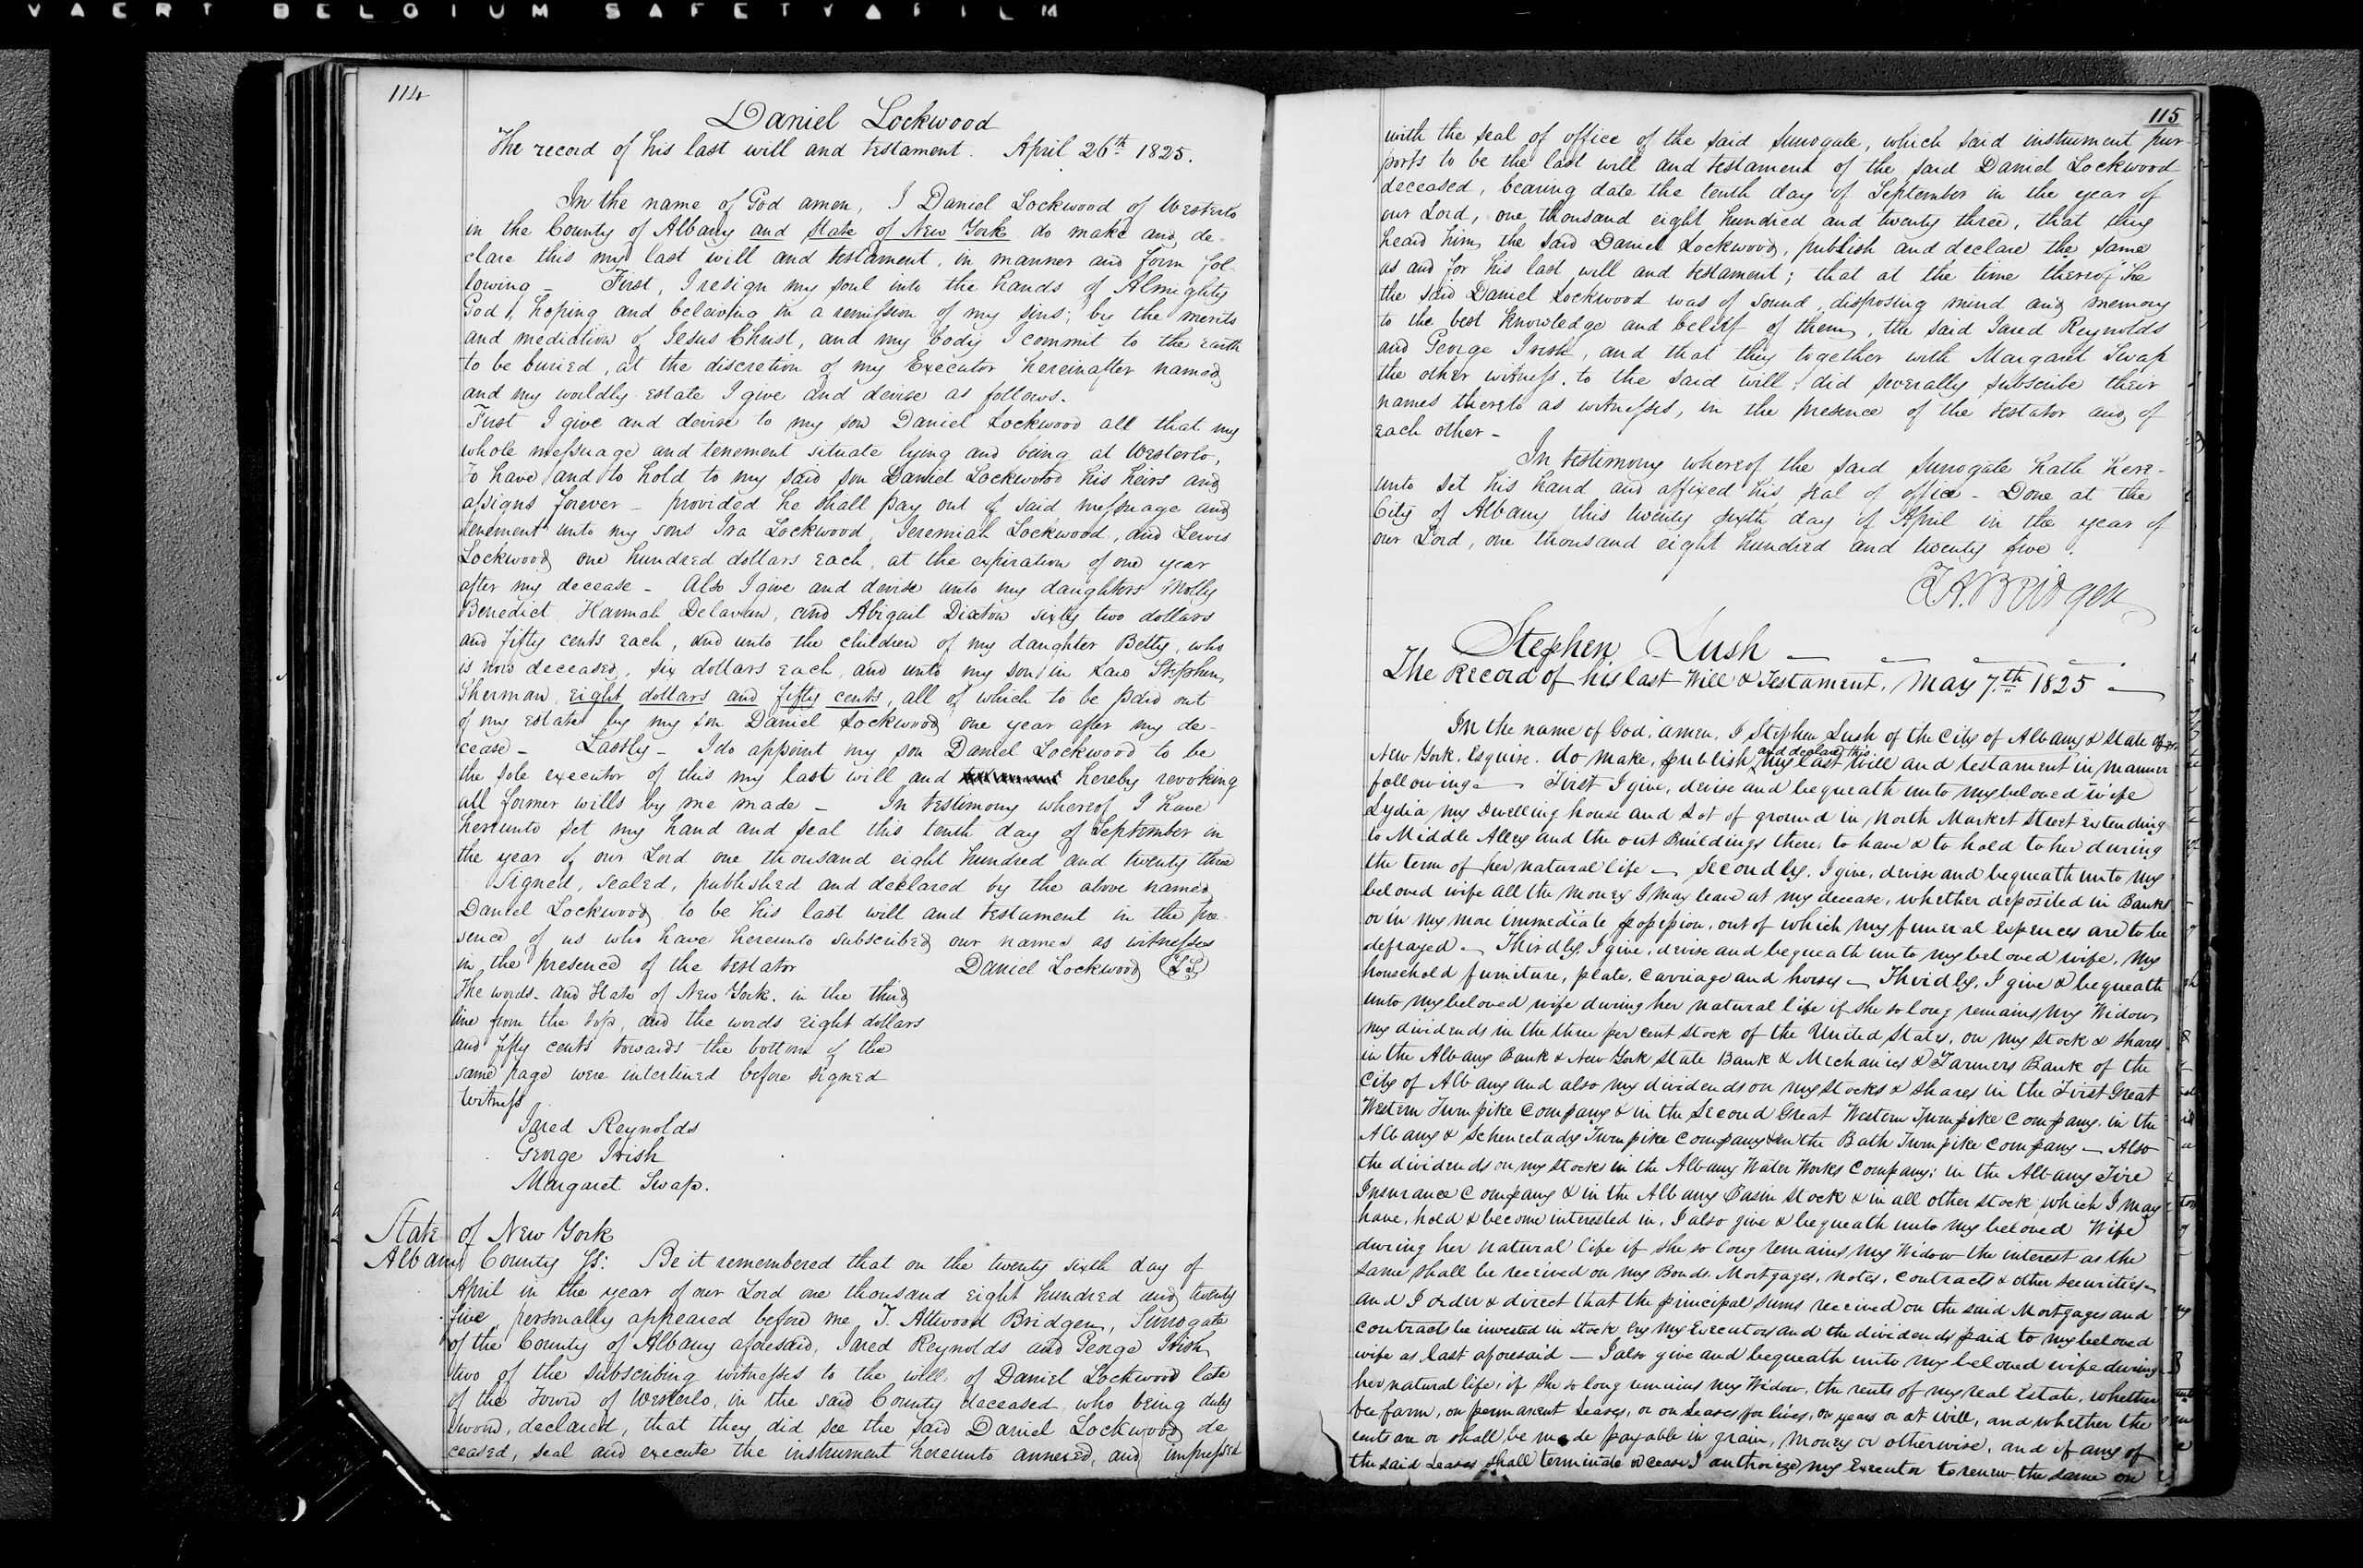 VAERT BELGIUM SAFETY FILM
114
Daniel Lockwood
The record of his last will and testament. April 26th 1825.
In the name of God amen, I Daniel Lockwood of Westerlo
in the County of Albany and State of New York do make and de-
clare this my last will and testament, in manner and form fol-
lowing - First, I resign my soul into the hands of Almighty
God, hoping and beleiving in a remission of my sins; by the merits
and mediation of Jesus Christ, and my body I commit to the earth
to be buried, at the discretion of my Executor hereinafter named
and my worldly estate I give and devise as follows.
First I give and devise to my son Daniel Lockwood all that my
whole messuage and tenement situate lying and being at Westerlo,
To have and to hold to my said son Daniel Lockwood his heirs and
assigns forever - provided he shall pay out of said messuage and
tenement unto my sons Ira Lockwood, Jeremiah Lockwood, and Lewis
Lockwood one hundred dollars each, at the expiration of one year
after my decease - Also I give and devise unto my daughters Molly
Benedict Hannah Delavan, and Abigail Dixton sixty two dollars
and fifty cents each, and unto the children of my daughter Betty, who
is now deceased, six dollars each, and unto my son in Law Stephen
Sherman, eight dollars and fifty cents, all of which to be paid out
of my estate by my son Daniel Lockwood one year after my de-
cease - Lastly - I do appoint my son Daniel Lockwood to be
the sole executor of this my last will and hereby revoking
all former wills by me made - In testimony whereof I have
hereunto set my hand and seal this tenth day of September in
the year of our Lord one thousand eight hundred and twenty three
Signed, sealed, published and declared by the above named
Daniel Lockwood to be his last will and testament in the pre-
sence of us who have hereunto subscribed our names as witnesses
in the presence of the testator Daniel Lockwood (LS)
The words. and State of New York. in the third
line from the top, and the words eight dollars
and fifty cents towards the bottom of the
same page were interlined before signed
Witness
Jared Reynolds
George Irish
Margaret Swap.
State of New York
Albany County Ss: Be it remembered that on the twenty sixth day of
April in the year of our Lord one thousand eight hundred and twenty
five, personally appeared before me, T. Attwood Bridgen, Surrogate
of the County of Albany aforesaid, Jared Reynolds and George Irish
two of the subscribing witnesses to the will of Daniel Lockwood late
of the Town of Westerlo, in the said County deceased, who being duly
sworn, declared, that they did see the said Daniel Lockwood de
ceased, seal and execute the instrument hereunto annexed, and impressed
115
with the seal of office of the said Surrogate, which said instrument pur
ports to be the last will and testament of the said Daniel Lockwood
deceased, bearing date the tenth day of September in the year of
our Lord, one thousand eight hundred and twenty three, that they
heard him the said Daniel Lockwood, publish and declare the same
as and for his last will and testament; that at the time thereof he
the said Daniel Lockwood was of sound, disposing mind and memory
to the best knowledge and belief of them, the said Jared Reynolds
and George Irish, and that they together with Margaret Swap
the other witness, to the said will, did severally subscribe their
names thereto as witnesses, in the presence of the testator and of
each other -
In testimony whereof the said Surrogate hath here-
unto set his hand and affixed his seal of office - Done at the
City of Albany this twenty sixth day of April in the year of
our Lord, one thousand eight hundred and twenty five.
T.A. Bridgen
Stephen Lush
The Record of his last Will & Testament, May 7.th 1825
In the name of God, amen. I Stephen Lush of the City of Albany & State of
New York. Esquire. do make, publish and declare this my last will and testament in manner
following - First I give, devise and bequeath unto my beloved wife
Lydia my Dwelling house and Lot of ground in North Market Street extending
to Middle Alley and the out Buildings there, to have & to hold to her during
the term of her natural life - Secondly. I give, devise and bequeath unto my
beloved wife all the money I may leave at my decease, whether deposited in Banks
or in my more immediate possession, out of which my funeral expences are to be
defrayed - Thirdly. I give, devise and bequeath unto my beloved wife, my
household furniture, plate, carriage and horses - Thirdly, I give & bequeath
unto my beloved wife during her natural life if she so long remains my Widow
my dividends in the three per cent stock of the United States, on my stock & shares
in the Albany Bank & New York State Bank & Mechanics & Farmers Bank of the
City of Albany and also my dividends on my stocks & shares in the First Great
Western Turnpike Company & in the Second Great Western Turnpike Company. in the
Albany & Schenectady Turnpike Company & in the Bath Turnpike Company - Also
the dividends on my stocks in the Albany Water Works Company; in the Albany Fire
Insurance Company & in the Albany Basin Stock & in all other stock which I may
have, hold & become interested in. I also give & bequeath unto my beloved Wife
during her natural life if she so long remains my Widow the interest as the
same shall be received on my Bonds. Mortgages, notes, contracts & other securities -
and I order & direct that the principal sums received on the said Mortgages and
contracts be invested in stock by my Executors and the dividends paid to my beloved
wife as last aforesaid - I also give and bequeath unto my beloved wife during
her natural life, if she so long remains my Widow, the rents of my real Estate, whether
fee farm, on permanent Leases, or on Leases for lives, or years or at will, and whether the
rents are or shall be made payable in grain, money or otherwise, and if any of
the said Leases shall terminate or cease I authorize my Executor to renew the same on